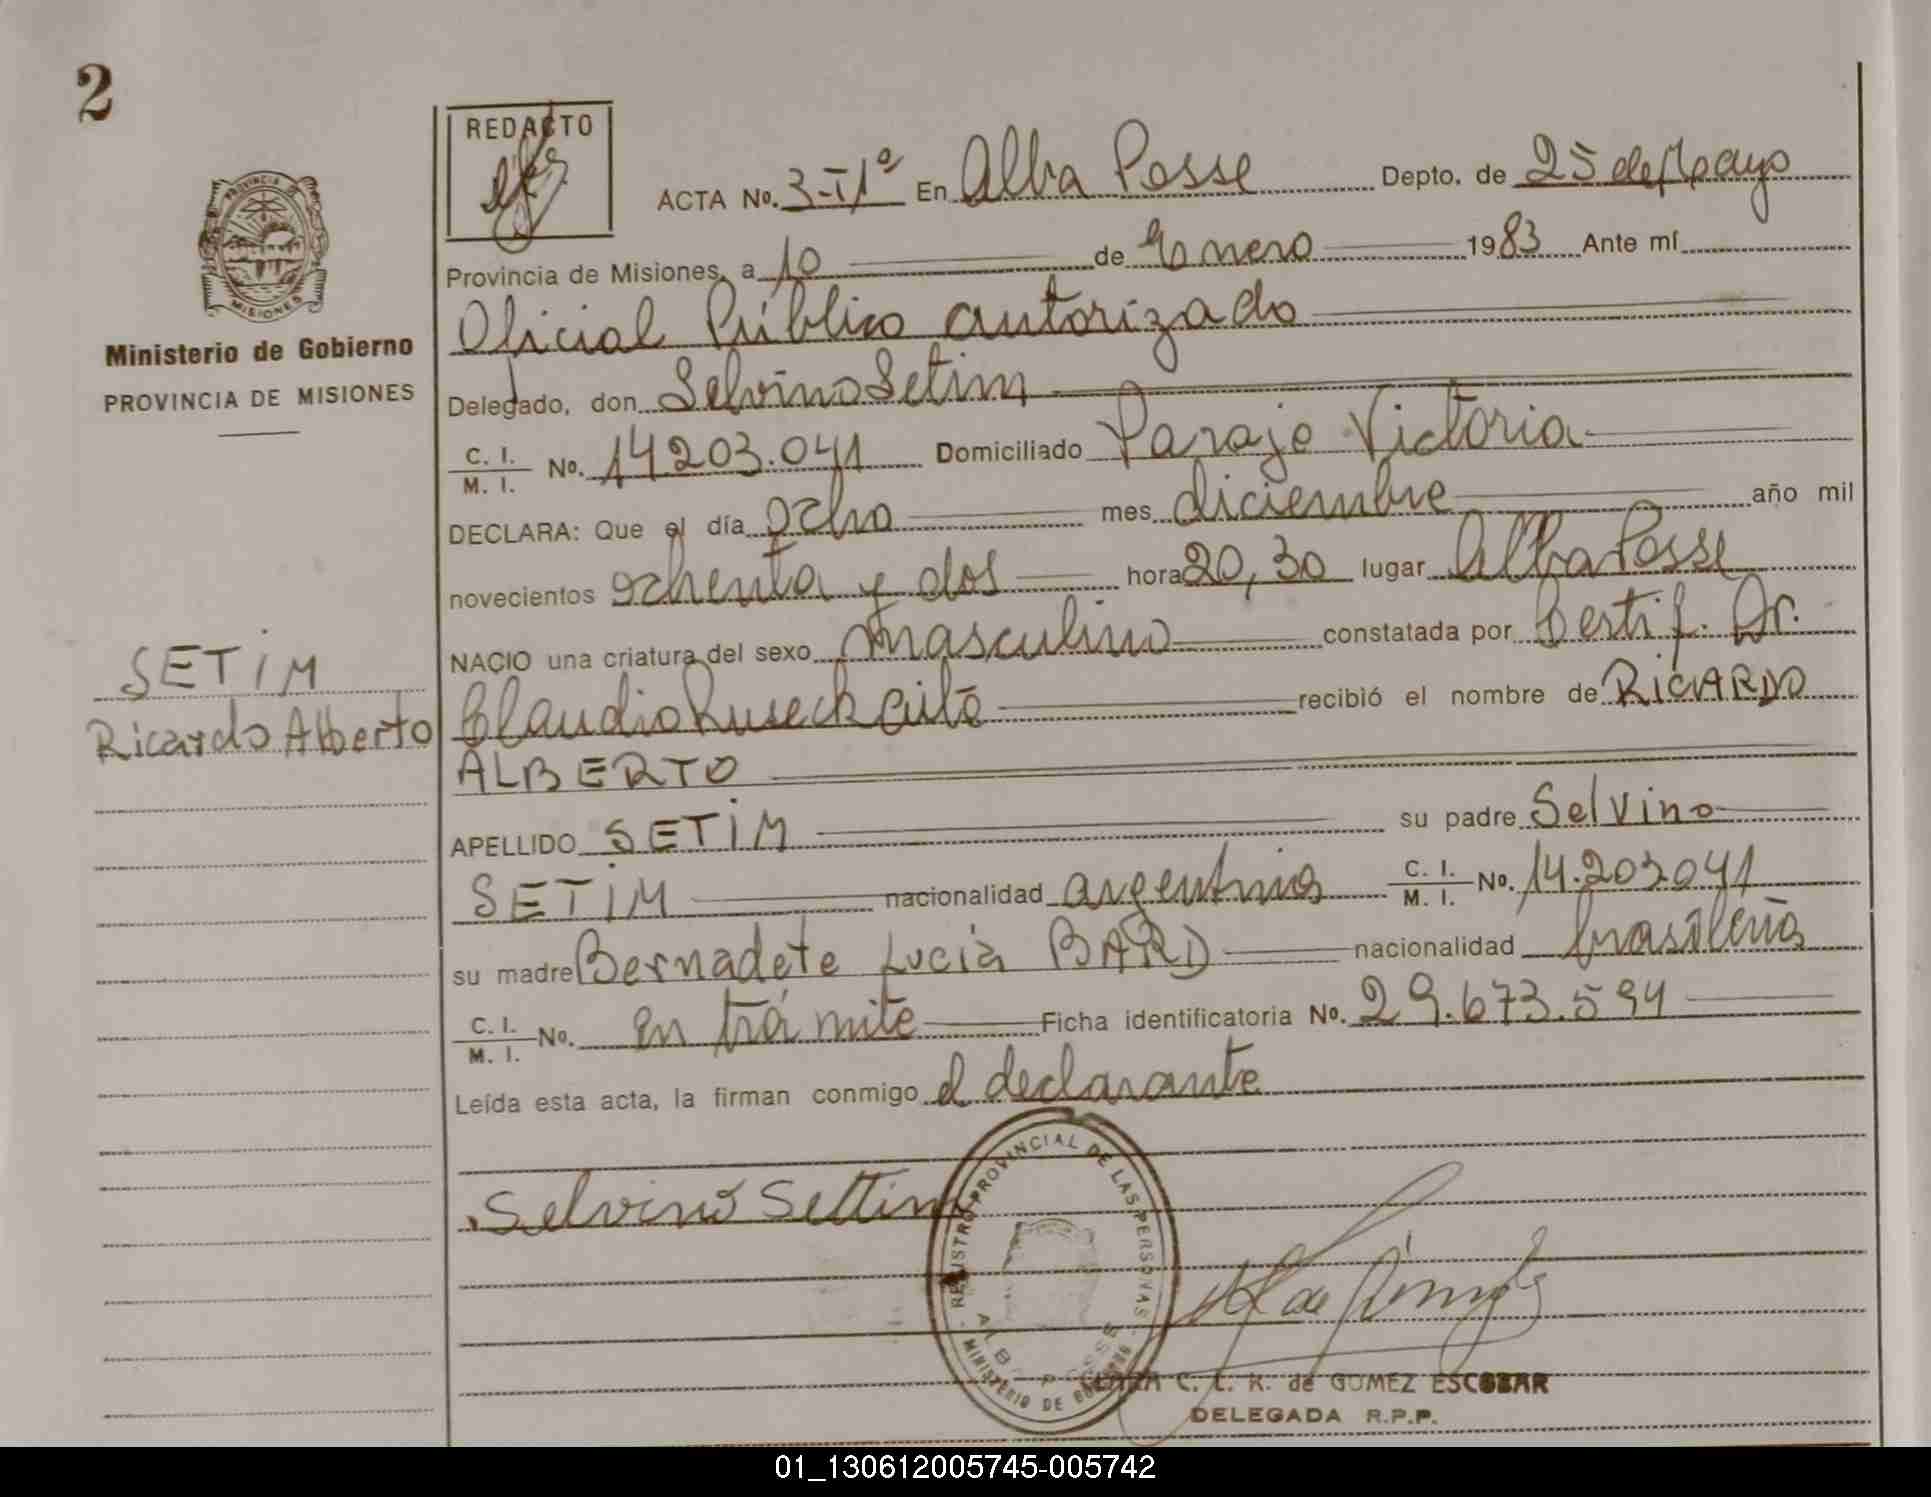 2
REDACTO
PROVINCIA DE
MISIONES
Ministerio de Gobierno
PROVINCIA DE MISIONES
SETIM
Ricardo Alberto
ACTA No. 3-T1º En Alba Posse Depto. de 25 de Mayo
Provincia de Misiones, a 10 de Enero 1983 Ante mí
Oficial Público autorizado
Delegado, don Selvino Setim
C. I. / M. I. No. 14.203.041 Domiciliado Paraje Victoria
DECLARA: Que el día ocho mes diciembre año mil
novecientos ochenta y dos hora 20,30 lugar Alba Posse
NACIO una criatura del sexo masculino constatada por Certif. Dr.
Claudio recibió el nombre de RICARDO
ALBERTO
APELLIDO SETIM su padre Selvino
SETIM nacionalidad argentina C. I. / M. I. No. 14.203.041
su madre Bernadete Lucia BARD nacionalidad brasileña
C. I. / M. I. No. en trámite Ficha identificatoria No. 29.673.594
Leída esta acta, la firman conmigo el declarante
Selvino Settim
REGISTRO PROVINCIAL DE LAS PERSONAS
ALBA POSSE
MINISTERIO DE GOBIERNO
C. L. K. de GOMEZ ESCOBAR
DELEGADA R.P.P.
01_130612005745-005742